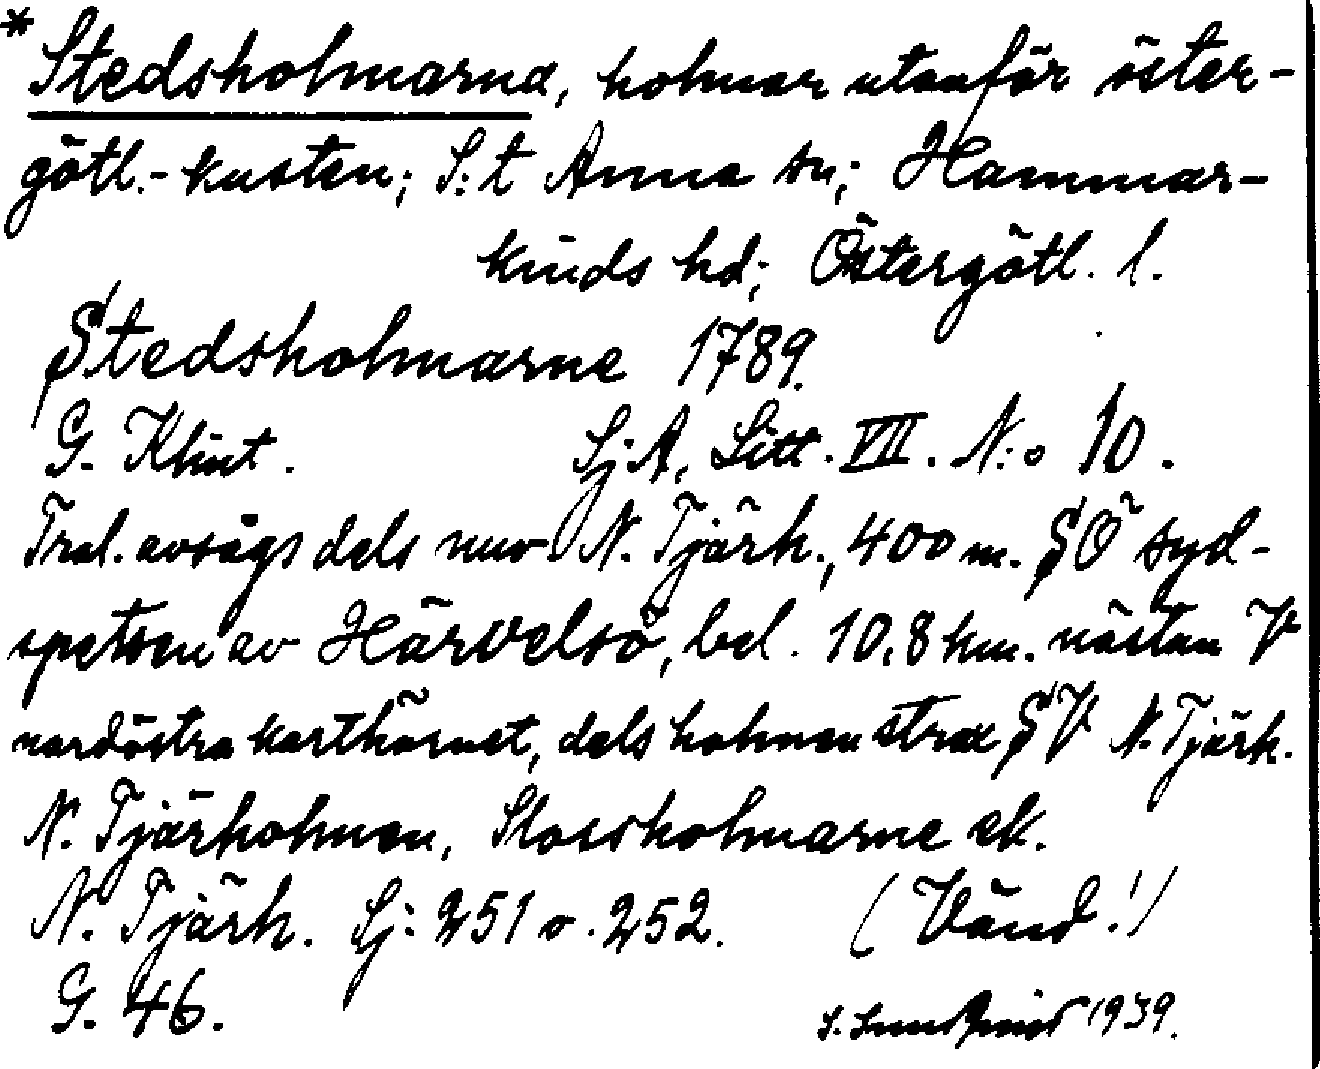 * Stedsholmarna, holmar utanför öster-
götl.-kusten; S:t Anna sn; Hammar-
kinds hd; Östergötl. l.
Stedsholmarne 1789.
G. Klint. SjA, Litt. VII. N:o 10.
Trol. avsågs dels nuv. N. Tjärh., 400 m. SÖ syd-
spetsen av Härvelsö, bel. 10,8 km. nästan V
nordöstra karthörnet, dels holmen strax SV N. Tjärh.
N. Tjärholmen, Slossholmarne ek.
N. Tjärh. Sj: 251 o. 252. (Vänd!)
G. 46.
1939.